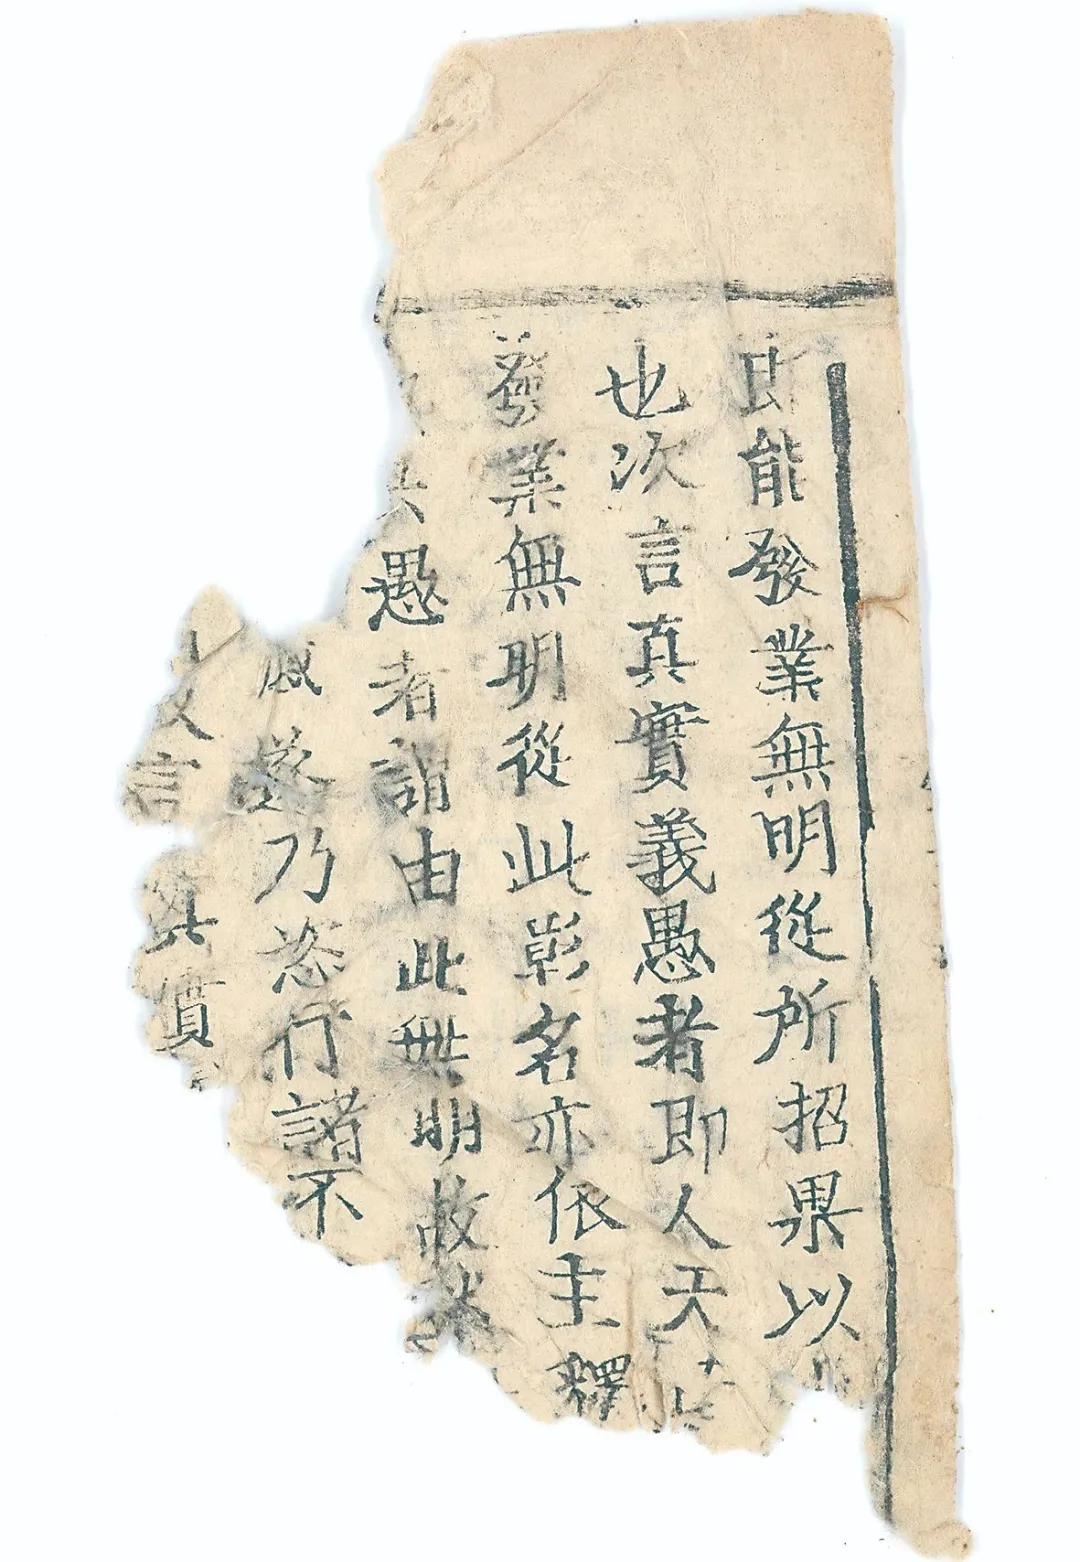 即能發業無明從所招果以
也次言真實義愚者即人天
發業無明從此彰名亦依主釋
愚者謂由此無明故迷
乃恣行諸不
故言真實